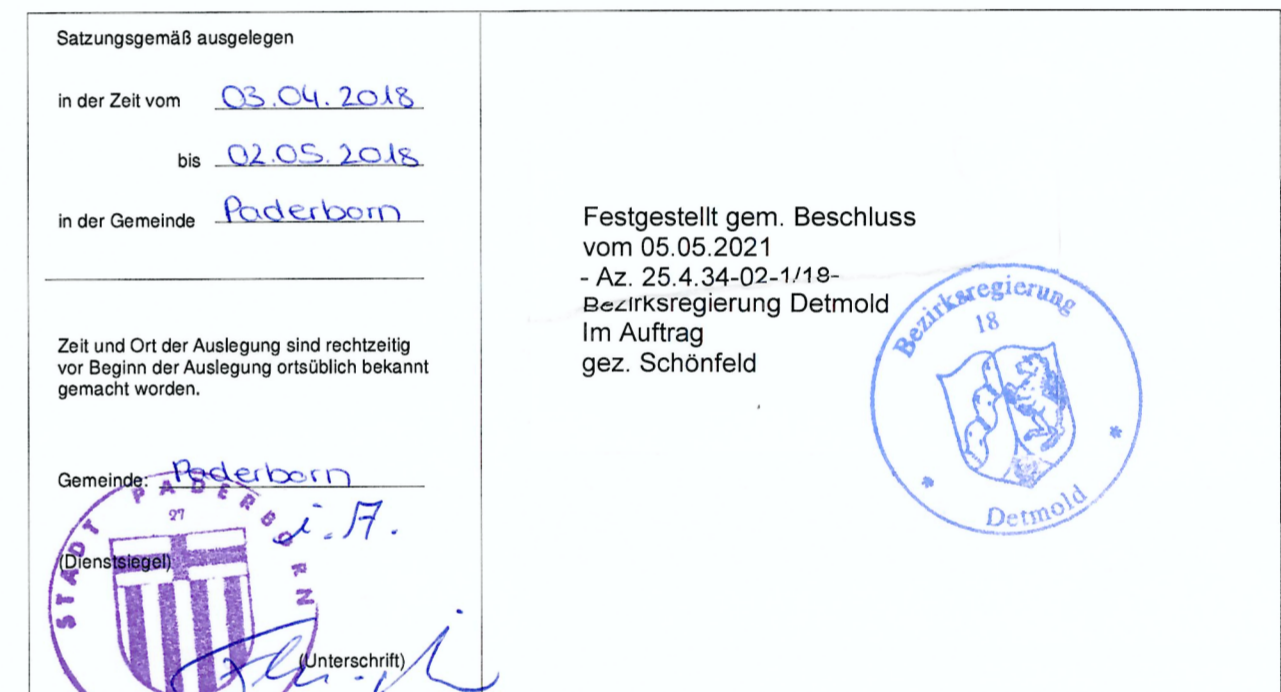 Satzungsgemäß ausgelegen
in der Zeit vom 03.04.2018
bis 02.05.2018
in der Gemeinde Paderborn
Zeit und Ort der Auslegung sind rechtzeitig
vor Beginn der Auslegung ortsüblich bekannt
gemacht worden.
Gemeinde: Paderborn
i.A.
STADT PADERBORN
27
(Dienstsiegel)
(Unterschrift)
Festgestellt gem. Beschluss
vom 05.05.2021
- Az. 25.4.34-02-1/18-
Bezirksregierung Detmold
Im Auftrag
gez. Schönfeld
Bezirksregierung
18
Detmold